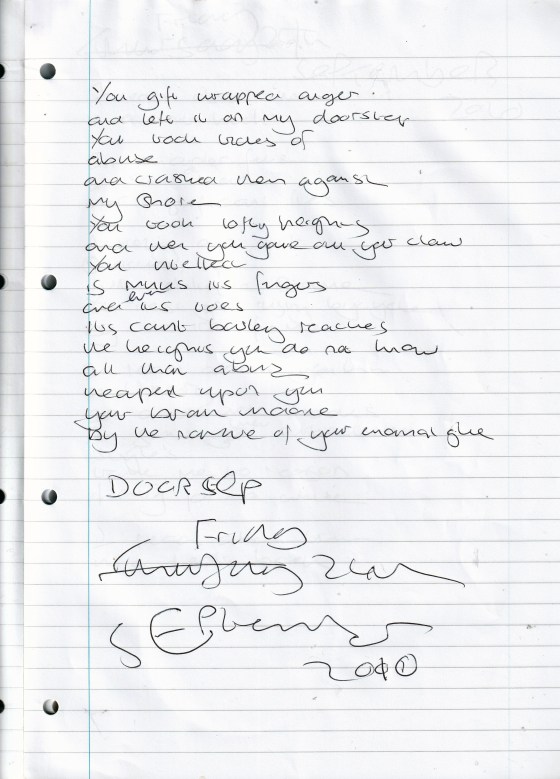 You gift wrapped anger.
and left it on my doorstep
You took tides of
abuse
and crashed them against
my Shore
You took lofty heights
and then you gave out your claw
You
is minus its fingers
even its toes
its cant barley reaches
the heights you do not know
all that abuse
heaped upon you
your brain
By the narrative of your glue
DOORStep
Friday
24th
SEPtember
2010